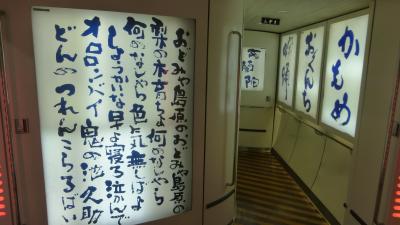 おどみや島原の おどみや島原の
梨の木育ちよ 何のなしやら
何のなしやら 色気無しばよ
しょうかいな 早よ寝ろ泣かんで
オロロンバイ 鬼の池ん久助
どんのつれんこらるばい
かもめ
おくんち